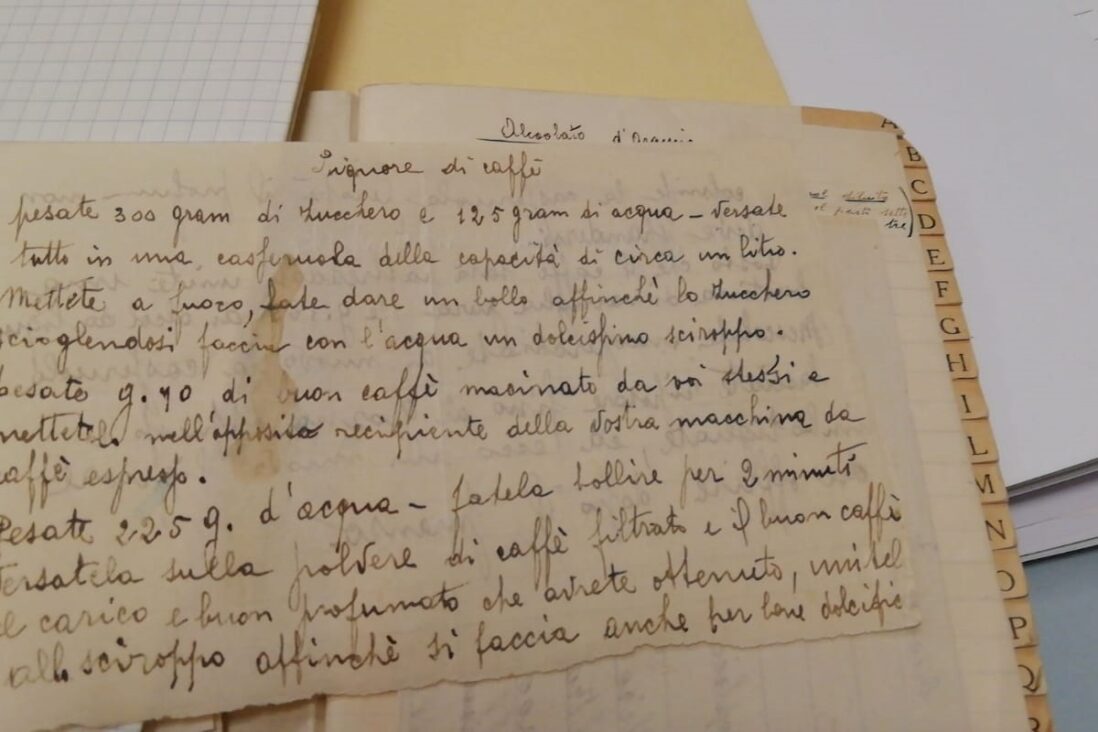 Alcoolato d'Arancio
Liquore di caffè
pesate 300 gram di zucchero e 125 gram di acqua - versate
tutto in una casseruola della capacità di circa un litro.
Mettete a fuoco, fate dare un bollo affinchè lo zucchero
scioglendosi faccia con l'acqua un dolcissimo sciroppo.
pesate g. 70 di buon caffè macinato da voi stessi e
mettetelo nell'apposito recipiente della vostra macchina da
caffè espresso.
Pesate 225 g. d'acqua - fatela bollire per 2 minuti
versatela sulla polvere di caffè filtrato e il buon caffè
e carico e buon profumato che avrete ottenuto, unitel
allo sciroppo affinchè si faccia anche per bene dolcific
tre)
A
B
C
D
E
F
G
H
I
L
M
N
O
P
Q
R